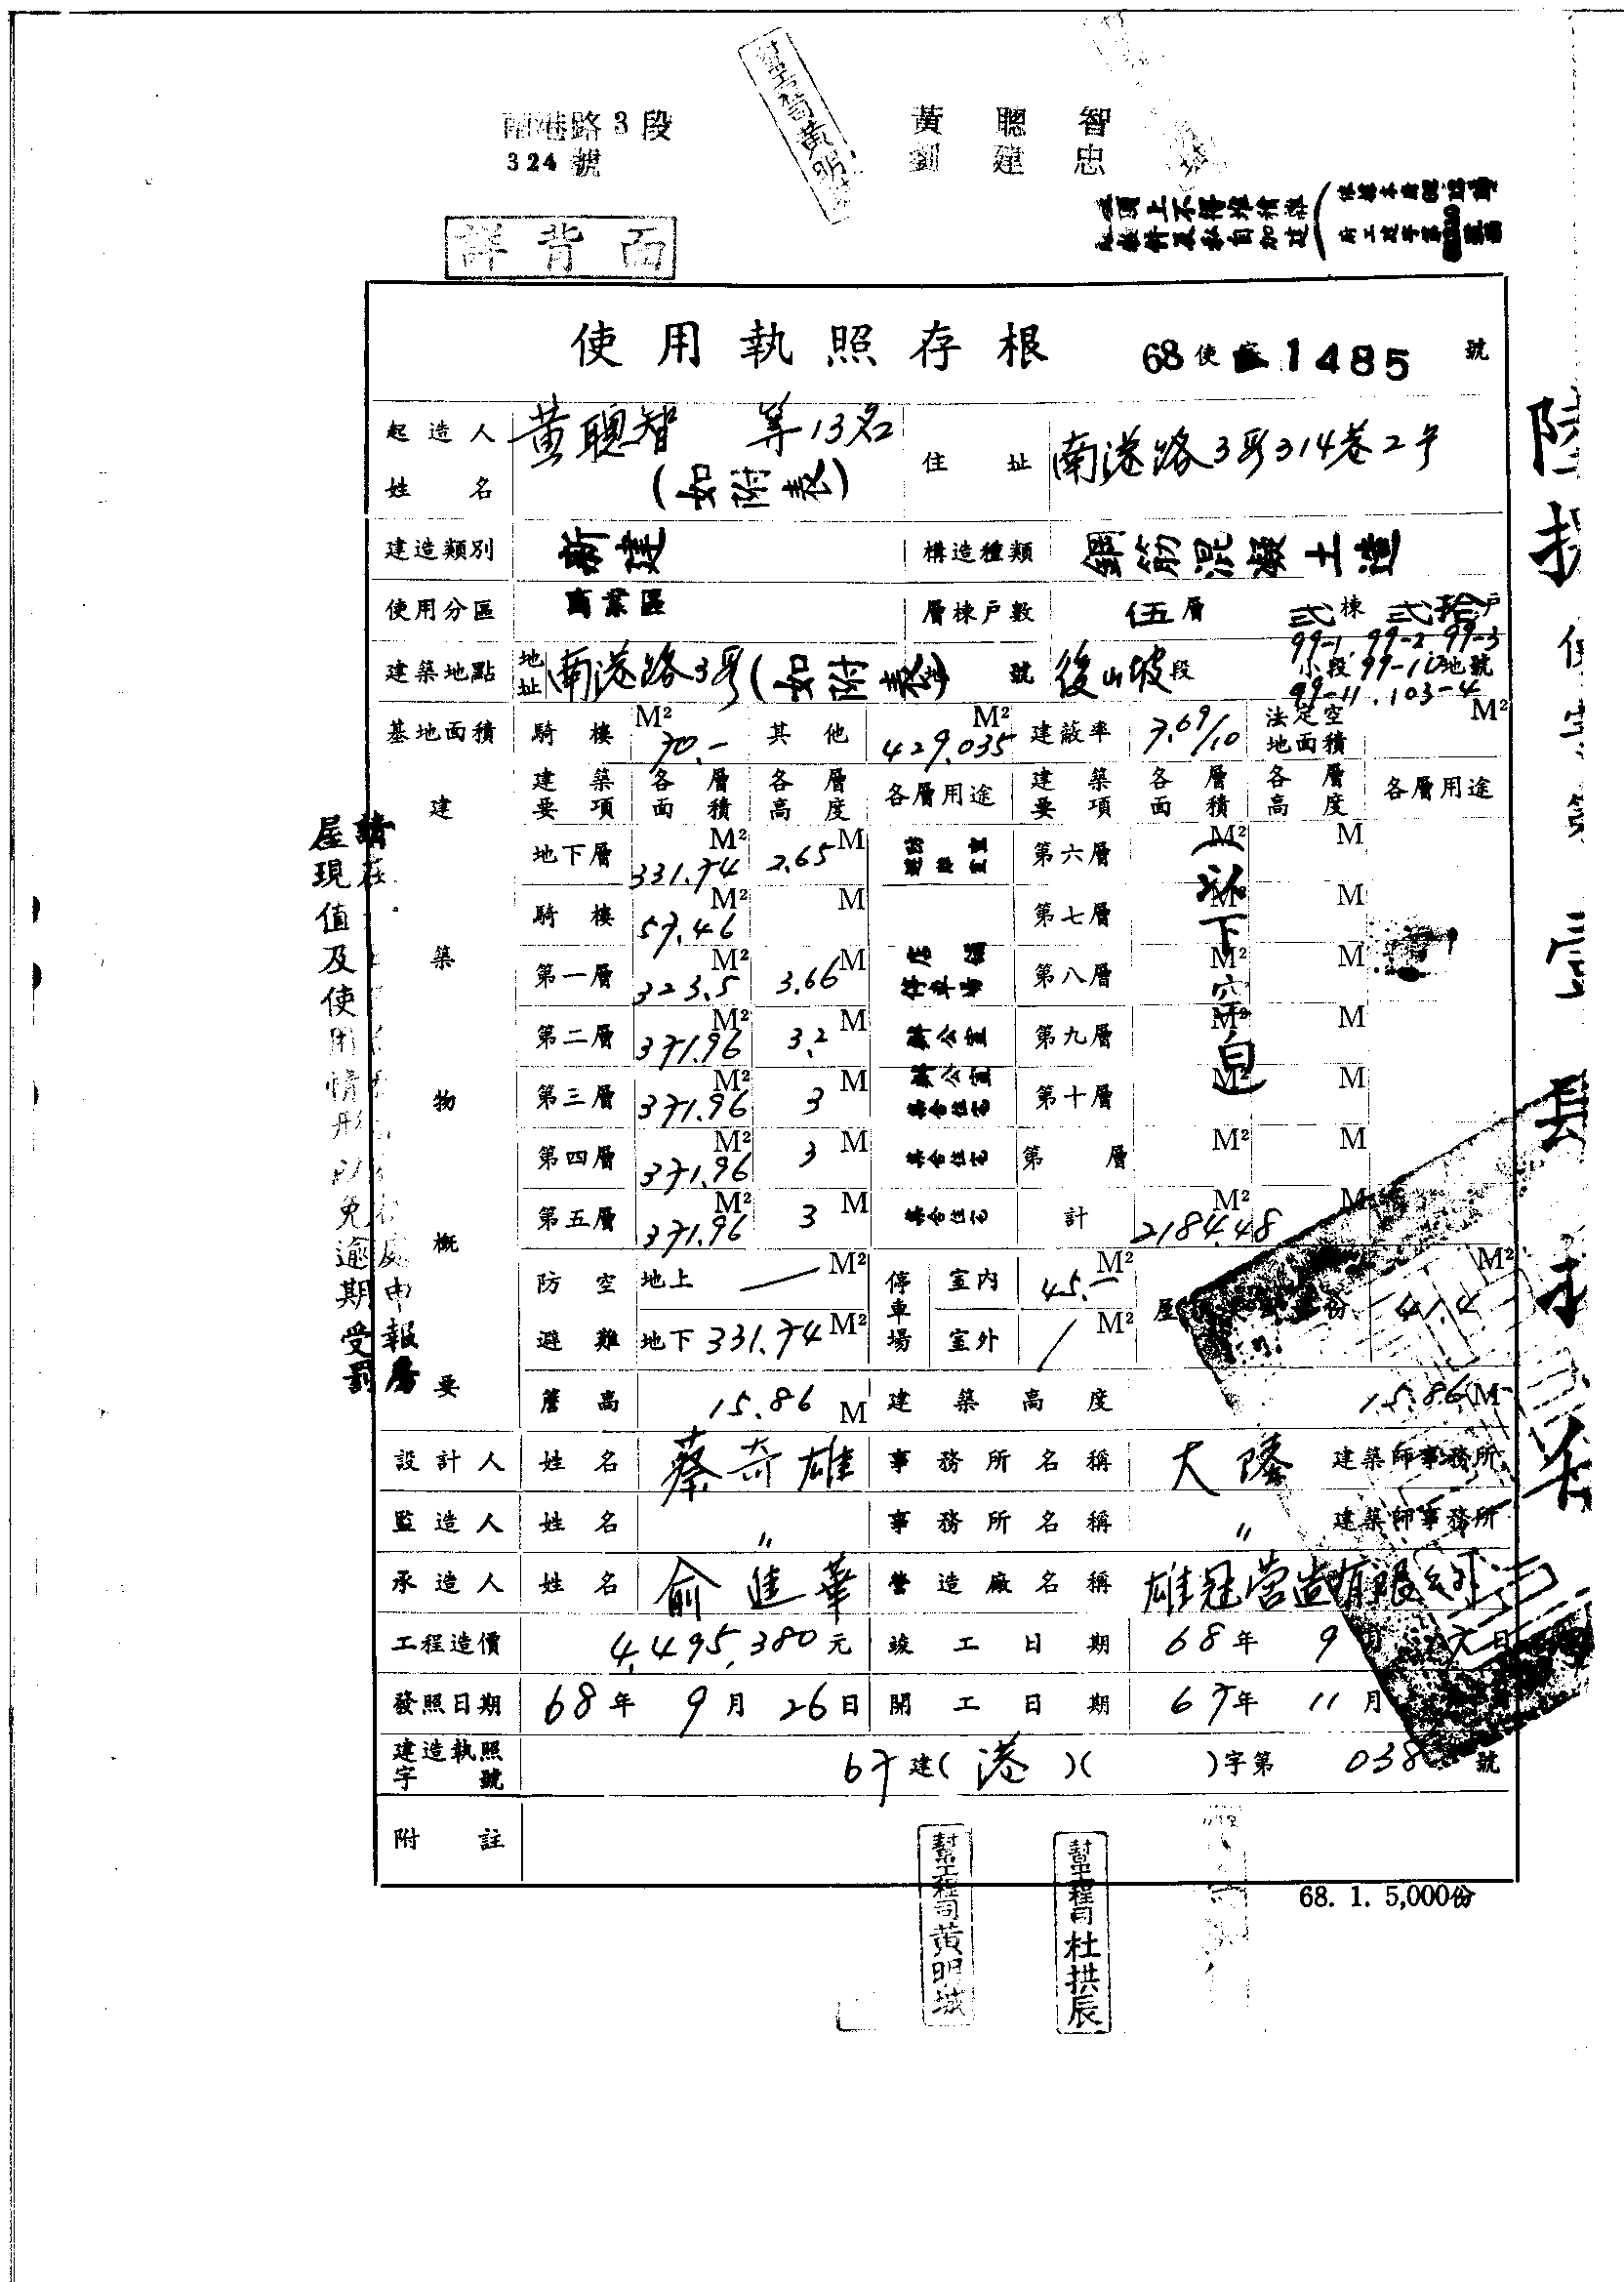 南港路3段
324號
黃聰智
劉建忠
詳背面
使用執照存根 68使 1485 號
起造人姓名 黃聰智 等13名 (如附表) 住址 南港路3段314巷2号
建造類別 新建 構造種類 鋼筋混凝土造
使用分區 商業區 層棟戶數 伍層 弍棟 弍拾戶
建築地點 地址 南港路3段(如附表) 地號 後山坡段 小段 99-1. 99-2. 99-3 99-10 地號 99-11. 103-4
基地面積 騎樓 M² 70.- 其他 M² 429.035 建蔽率 7.69/10 法定空地面積 M²
建築物概要
建築要項 各層面積 各層高度 各層用途 建築要項 各層面積 各層高度 各層用途
地下層 331.74 M² 2.65 M 第六層 M² M
騎樓 57.46 M² M 第七層 M² M
第一層 323.5 M² 3.66 M 店舖 停車場 第八層 M² M
第二層 371.96 M² 3.2 M 辦公室 第九層 M² M
第三層 371.96 M² 3 M 辦公室 集合住宅 第十層 M² M
第四層 371.96 M² 3 M 集合住宅 第 層 M² M
第五層 371.96 M² 3 M 集合住宅 計 2184.48 M² M
(以下空白
防空避難 地上 — M² 停車場 室內 45.- M² 屋 份 41.4 M²
地下 331.74 M² 室外 / M²
簷高 15.86 M 建築高度 15.86 M
設計人 姓名 蔡奇雄 事務所名稱 大 建築師事務所
監造人 姓名 〃 事務所名稱 〃 建築師事務所
承造人 姓名 俞進華 營造廠名稱 雄冠營造有限
工程造價 4,495,380元 竣工日期 68年 9 日
發照日期 68年 9月 26日 開工日期 67年 11月
建造執照字號 67建(港)( )字第 038 號
附註
68. 1. 5,000份
幫工程司黃明城
幫工程司杜拱辰
屋現值及使用情形
免逾期受罰
申報